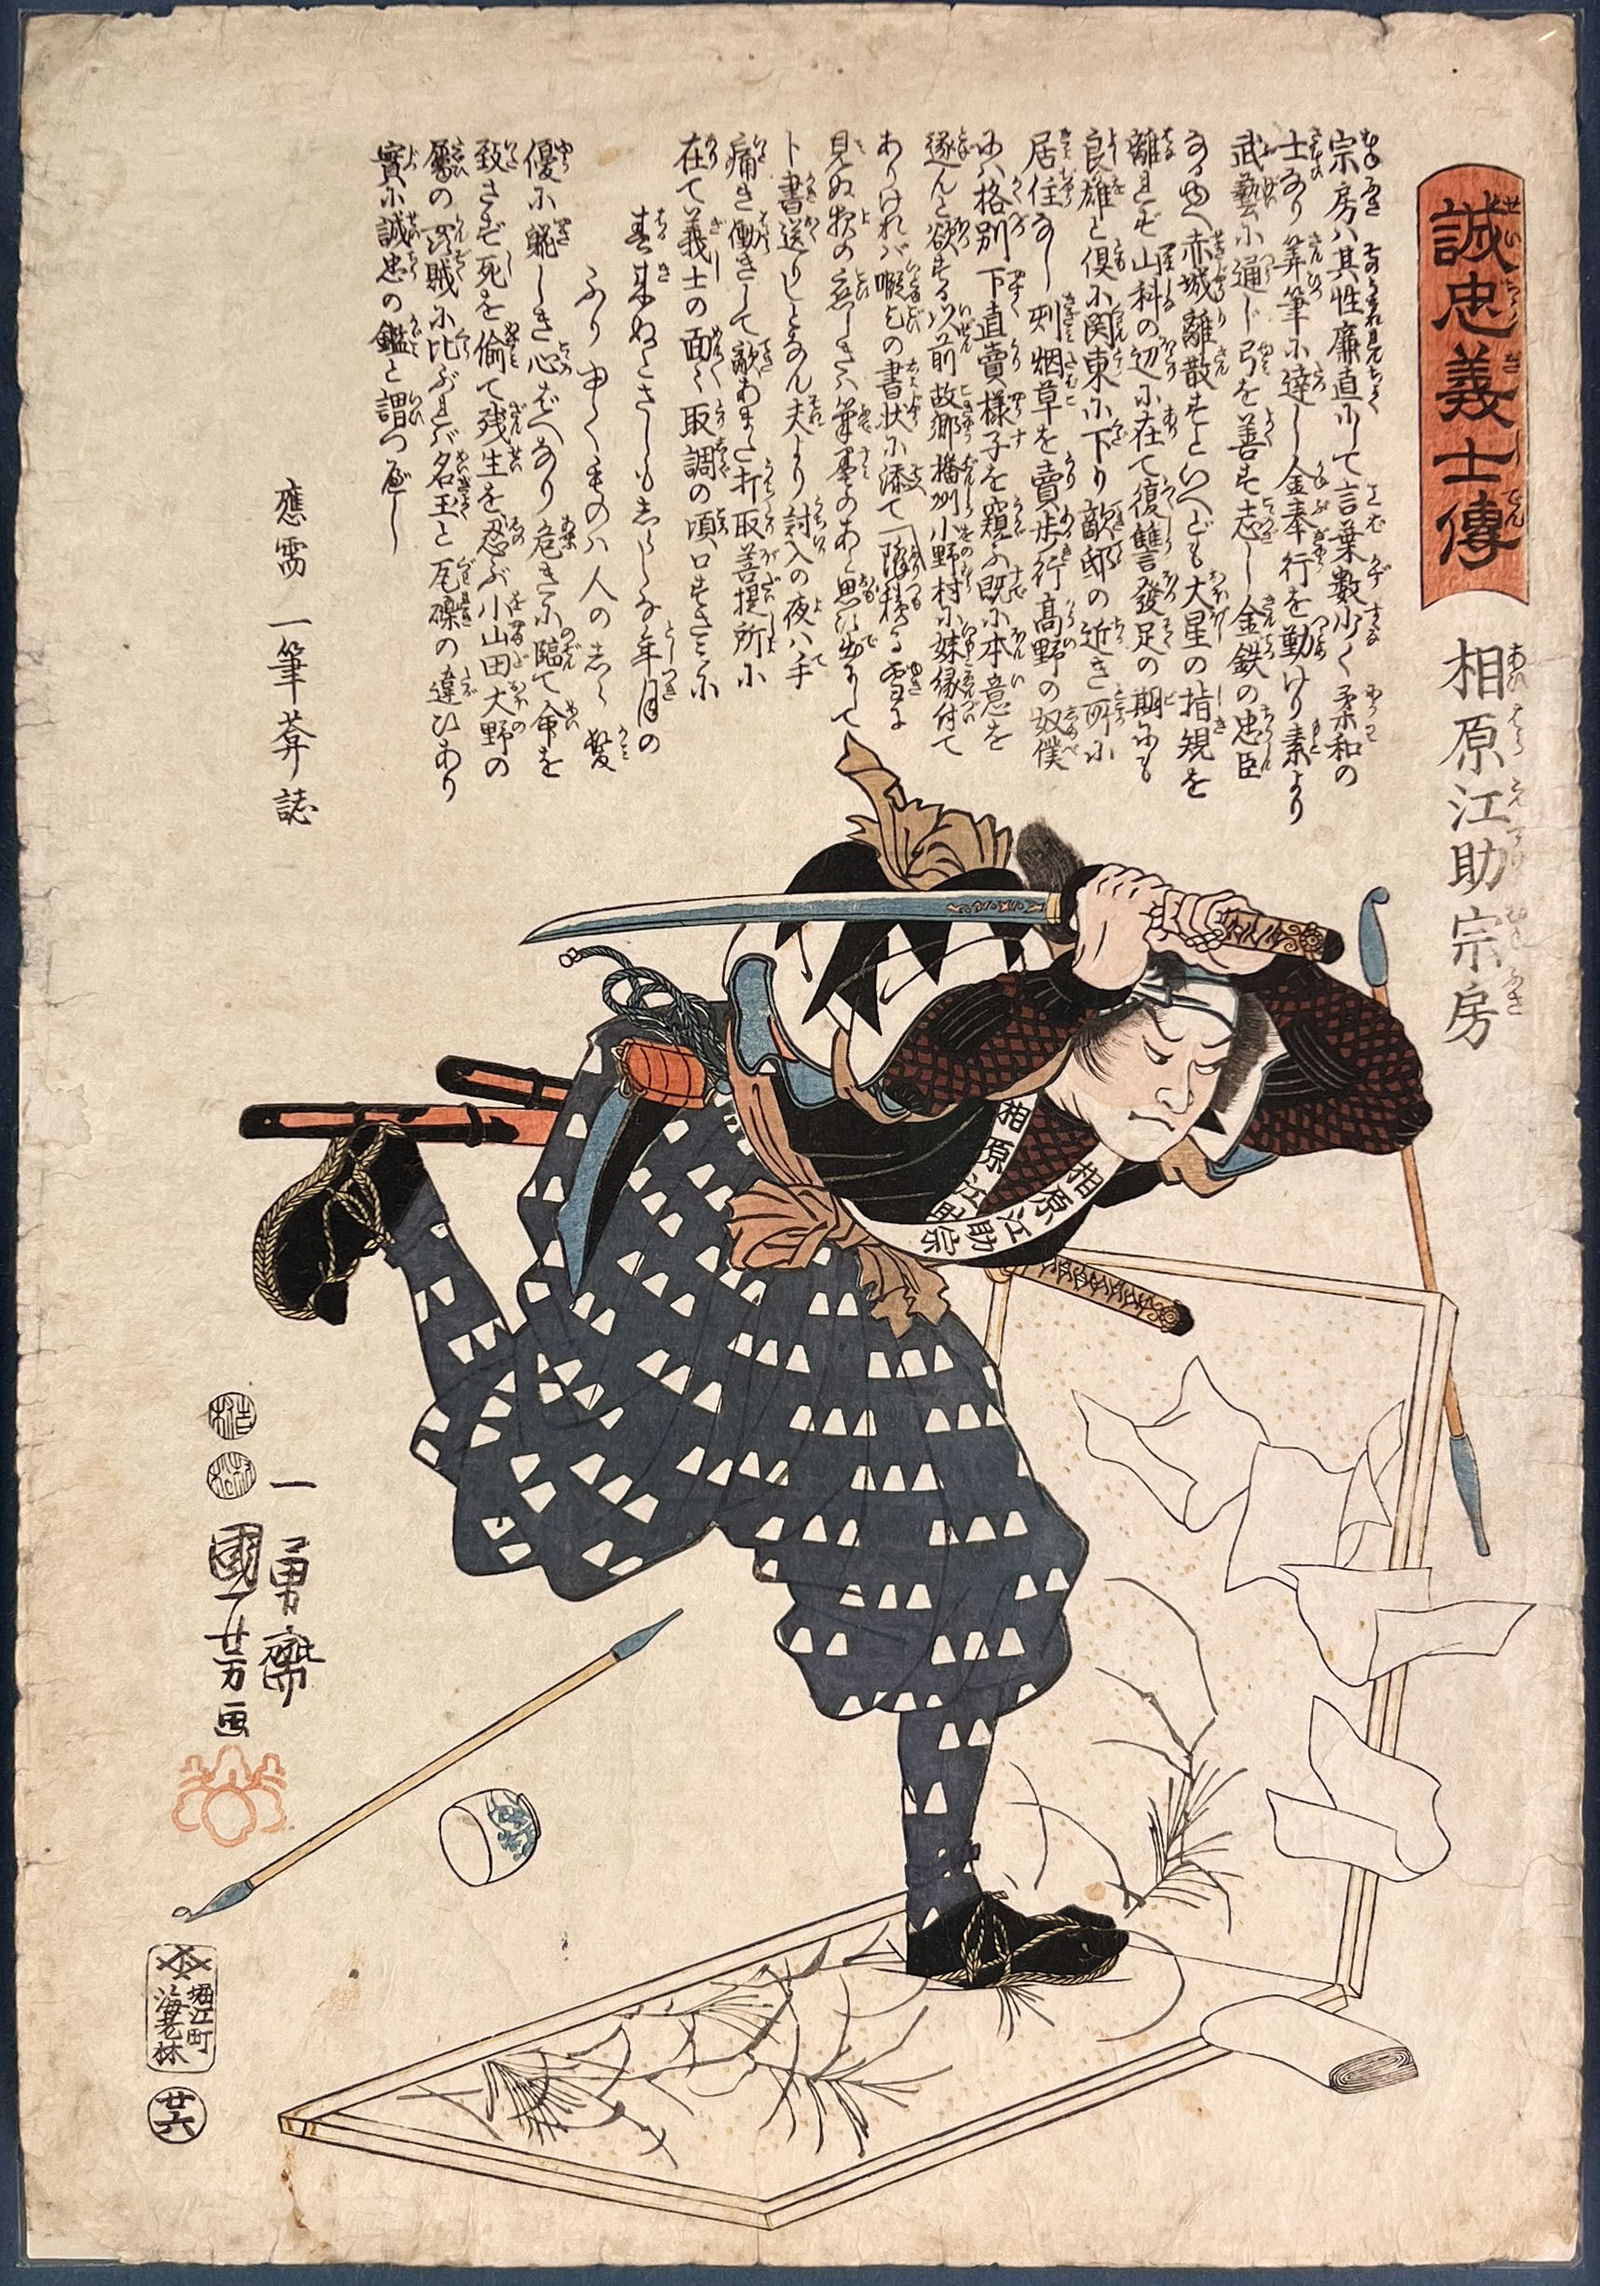 誠忠義士傳
せいちうぎしでん
相原江助宗房
宗房ハ其性廉直にして言葉數少く柔和の
士なり算筆に達し金奉行を勤けり素より
武藝に通じ弓を善す志し金鉄の忠臣
なるゆへ赤城離散すといへども大星の指規を
離れず山科の辺に在て復讐發足の期にも
良雄と倶に関東に下り敵邸の近き所に
居住なし刻烟草を賣歩行高野の奴僕
にハ格別下直賣様子を窺ふ既に本意を
遂んと欲する以前故郷播州小野村に妹縁付て
ありけれバ暇乞の書状に添て
見ぬ
ト書送りしとなん夫より討入の夜ハ手
痛き働きして敵あまた打取菩提所に
在て義士の面〻取調の頃口ずさミに
春来ぬとさしもしらしな年月の
ふり申くものハ人のしら髪
優に艶しき心ばへなり危きに臨て命を
致さず死を偷て残生を忍ぶ小山田大野の
属の国賊に比ぶれバ名玉と瓦礫の違ひあり
實に誠忠の鑑と謂つべし
應需 一筆葊誌
相原江助
相原江助宗
一勇齋
國芳画
堀江町
海老林
廿六